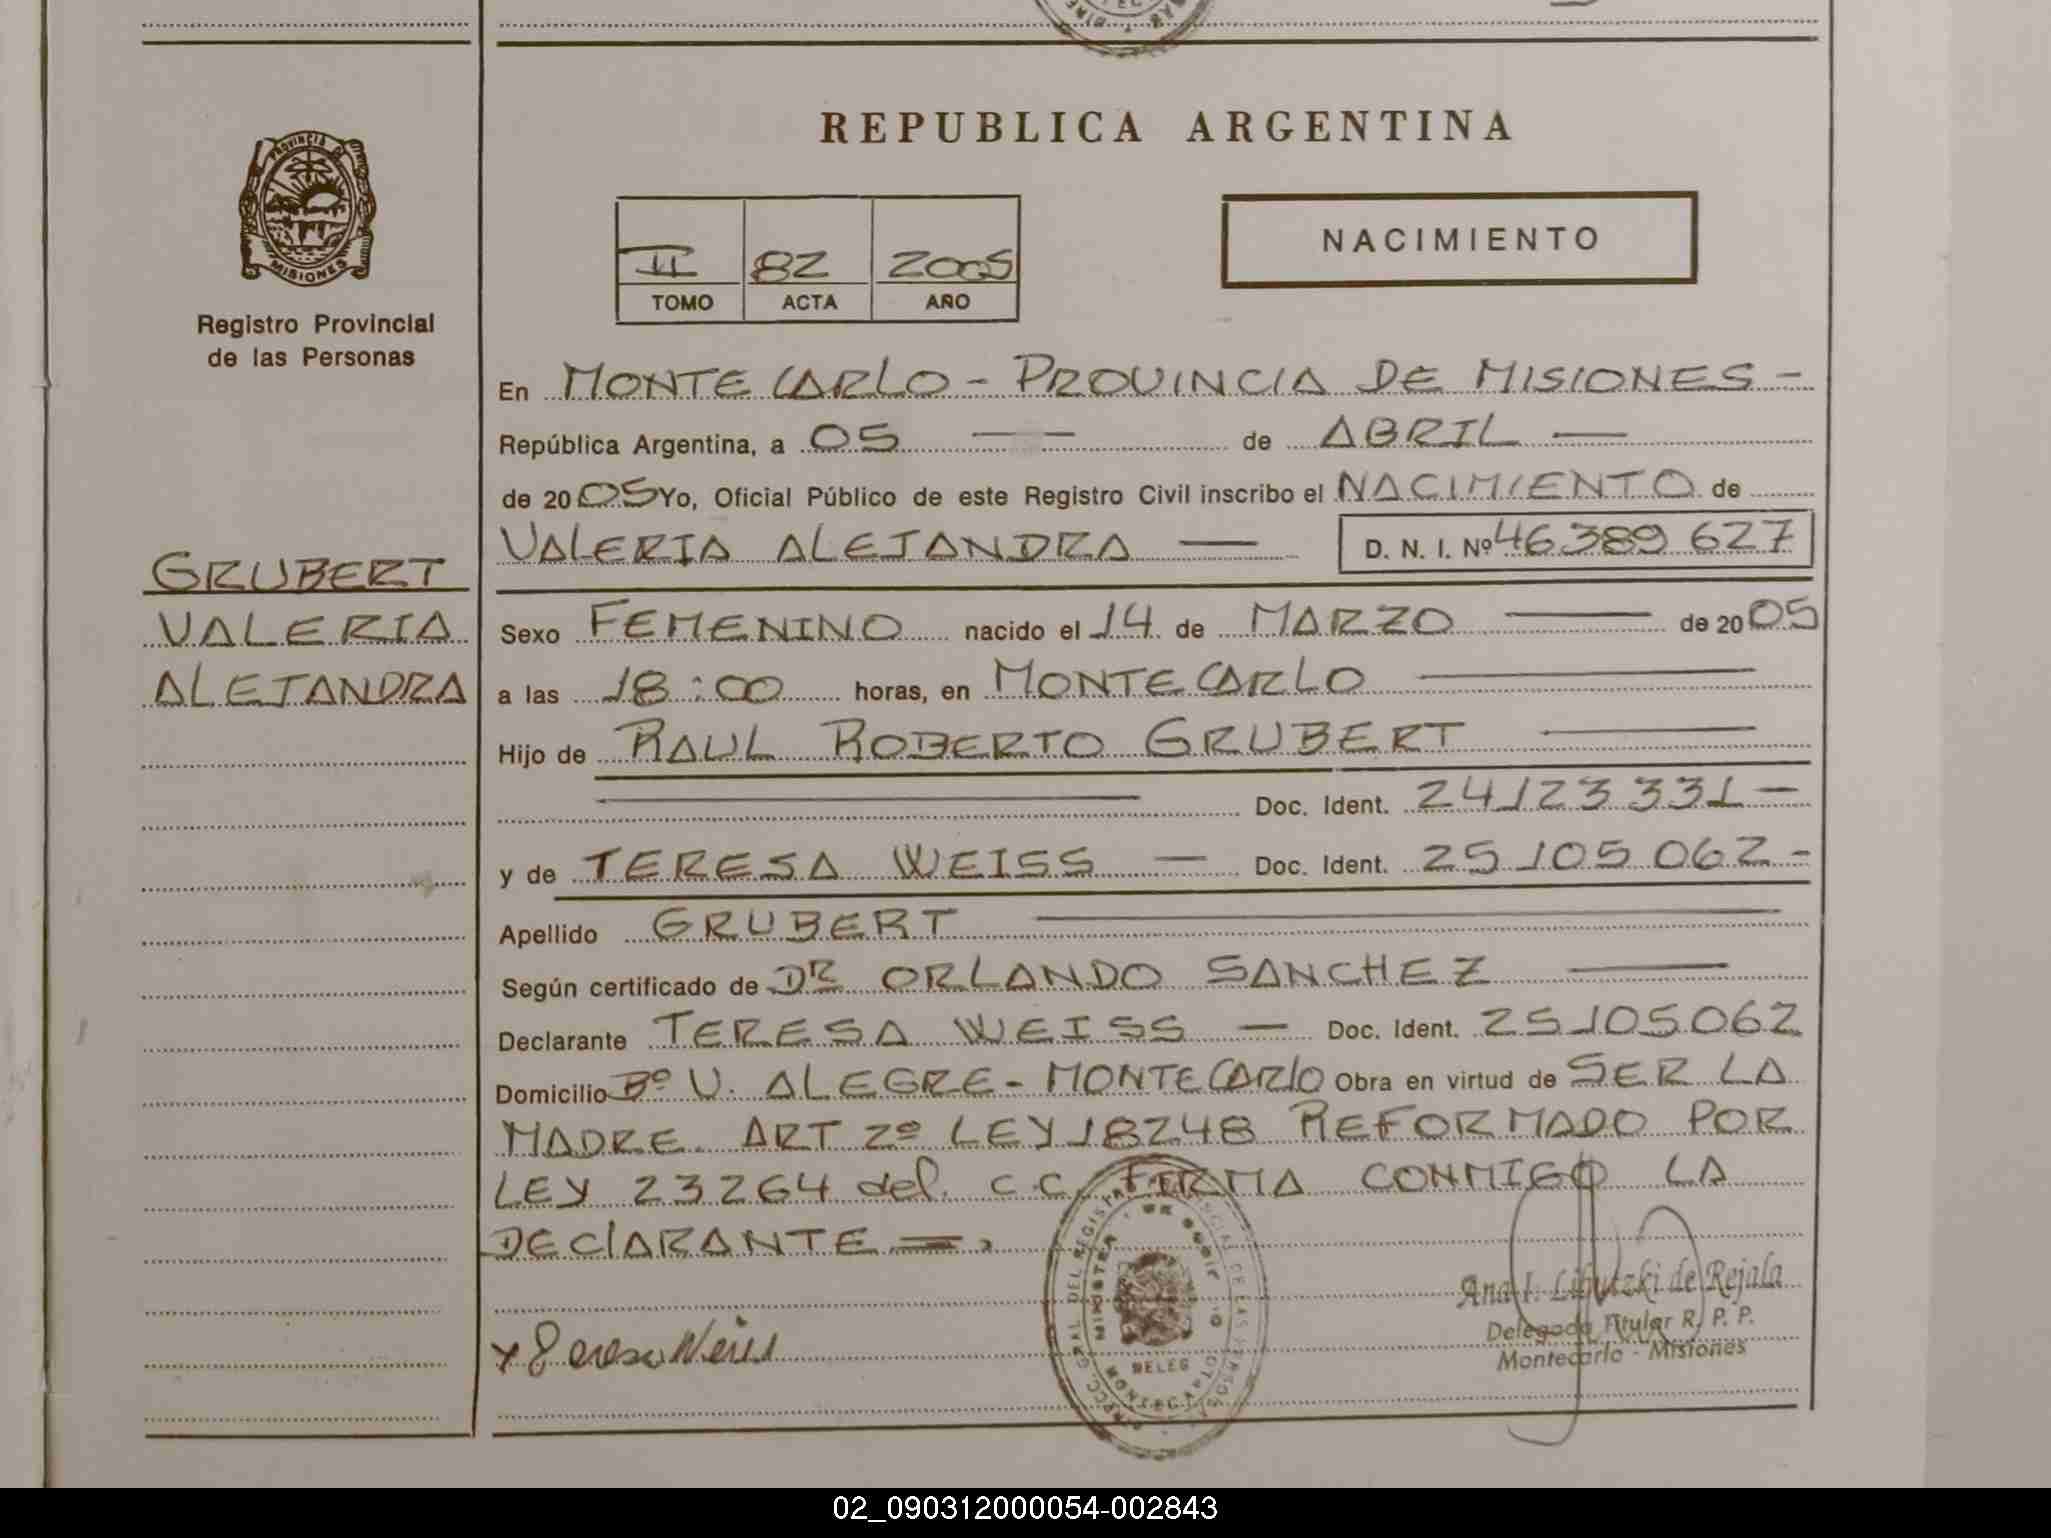 REPUBLICA ARGENTINA
PROVINCIA DE
MISIONES
Registro Provincial
de las Personas
II 82 2005
TOMO ACTA AÑO
NACIMIENTO
En MONTECARLO - PROVINCIA DE MISIONES -
República Argentina, a 05 — de ABRIL —
de 2005 Yo, Oficial Público de este Registro Civil inscribo el NACIMIENTO de
VALERIA ALEJANDRA — D. N. I. Nº 46389 627
GRUBERT
VALERIA
ALEJANDRA
Sexo FEMENINO nacido el 14 de MARZO — de 2005
a las 18:00 horas, en MONTECARLO —
Hijo de RAUL ROBERTO GRUBERT —
— Doc. Ident. 24123 331 —
y de TERESA WEISS — Doc. Ident. 25 105 062 -
Apellido GRUBERT —
Según certificado de DR ORLANDO SANCHEZ —
Declarante TERESA WEISS — Doc. Ident. 25105062
Domicilio Bº V. ALEGRE - MONTECARLO Obra en virtud de SER LA
MADRE. ART 2º LEY 18248 REFORMADO POR
LEY 23264 del C.C. FIRMA CONMIGO LA
DEClARANTE =.
x Teresa Weiss
DELEG
Ana I. Libutzki de Rejala
Delegada Titular R. P. P.
Montecarlo - Misiones
02_090312000054-002843